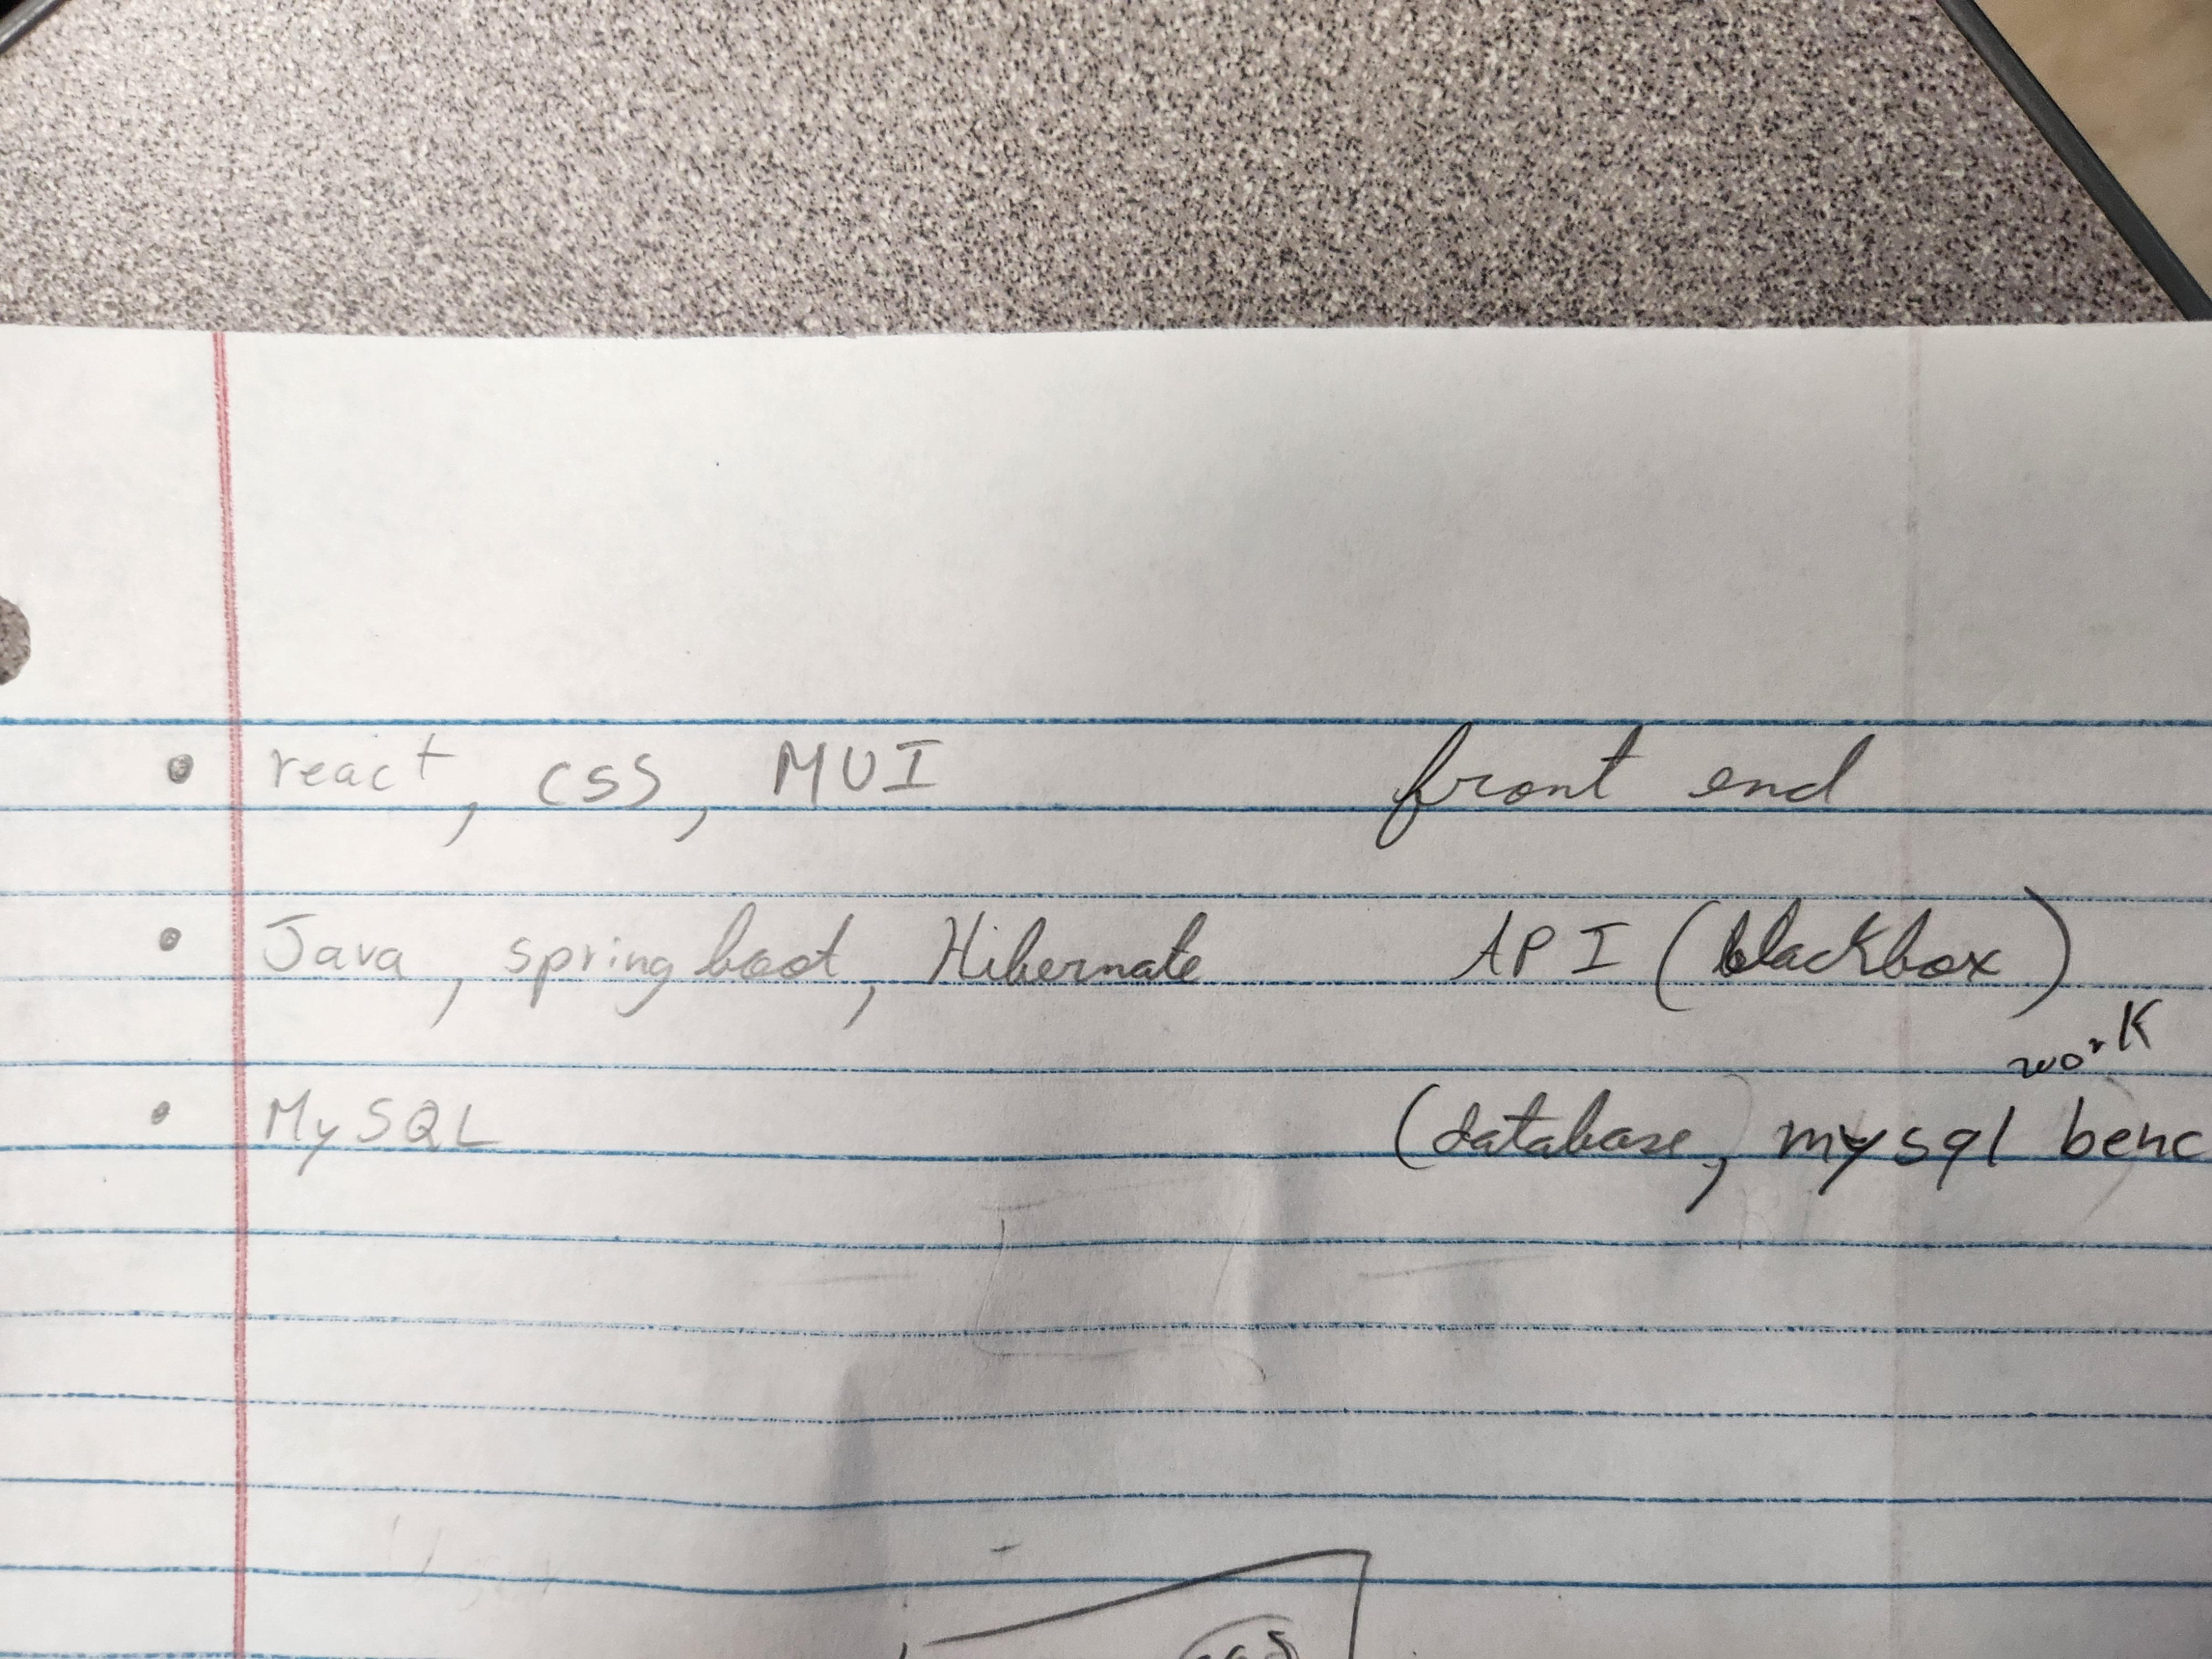 • react, CSS, MUI front end
• Java, springboot, Hibernate API (blackbox)
work
• MySQL (database, mysql benc